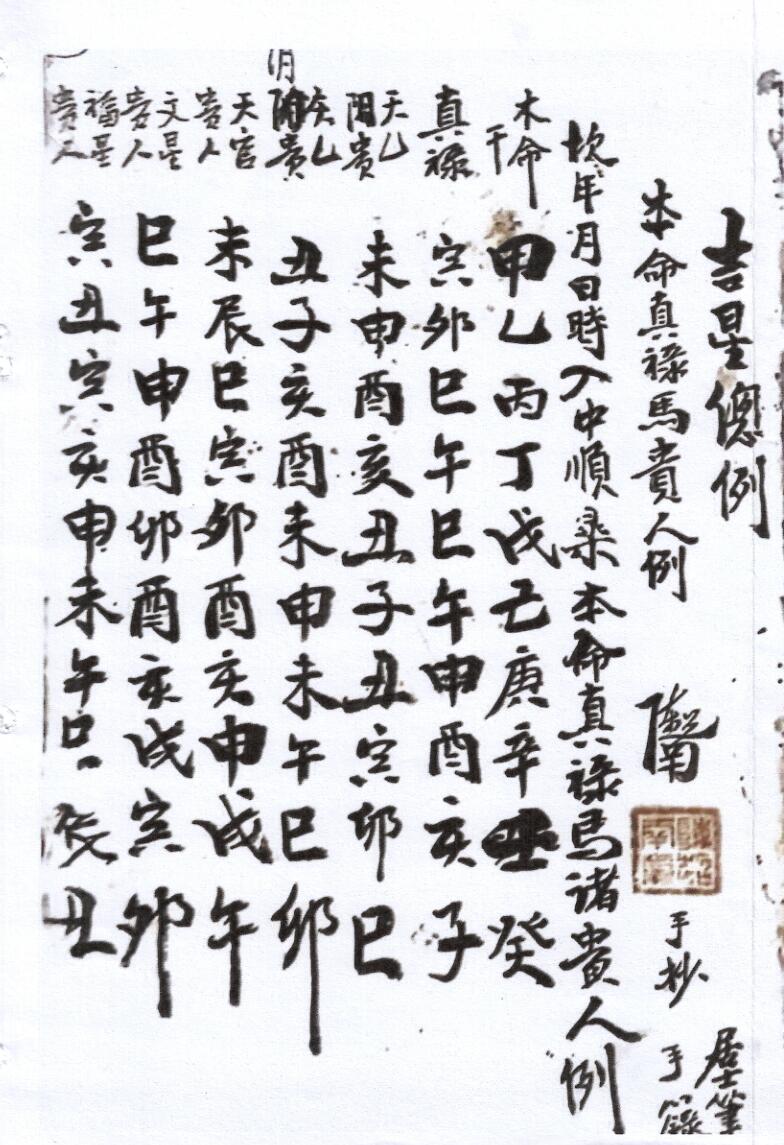 吉星總例
本命真祿馬貴人例
手抄
居士筆
手錄
次年月日時入中順尋本命真祿馬诸貴人例
本命干 甲乙丙丁戊己庚辛壬癸
真祿 寅卯巳午巳午申酉亥子
天乙阳貴 未申酉亥丑子丑寅卯巳
天乙阴貴 丑子亥酉未申未午巳卯
天官贵人 未辰巳寅卯酉亥申戌午
文星贵人 巳午申酉卯酉亥戌寅卯
福星貴人 寅丑寅亥申未午巳辰丑